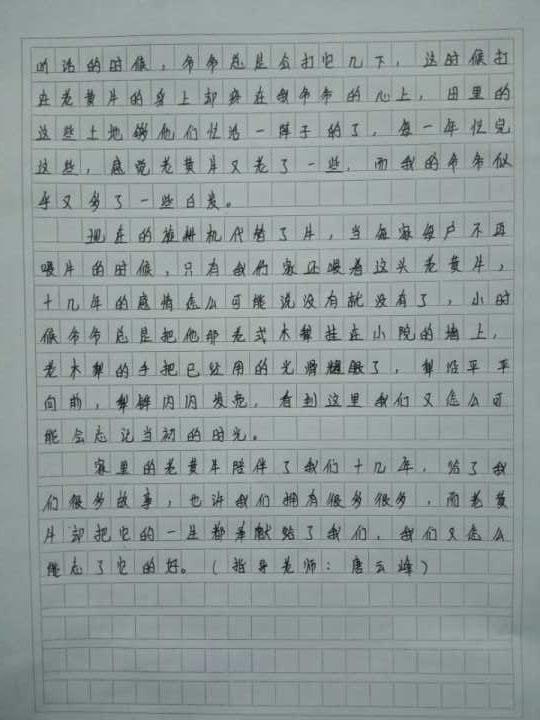 听话的时候，爷爷总是会打它几下，这时候打
在老黄牛的身上却疼在我爷爷的心上，田里的
这些土地够他们忙活一阵子的了，每一年忙完
这些，感觉老黄牛又老了一些，而我的爷爷似
乎又多了一些白发。
现在的旋耕机代替了牛，当每家每户不再
喂牛的时候，只有我们家还喂着这头老黄牛，
十几年的感情怎么可能说没有就没有了，小时
候爷爷总是把他那老式木犁挂在小院的墙上，
老木犁的手把已经用的光滑耀眼了，犁沿平平
向前，犁铧闪闪发亮，看到这里我们又怎么可
能会忘记当初的时光。
家里的老黄牛陪伴了我们十几年，给了我
们很多故事，也许我们拥有很多很多，而老黄
牛却把它的一生都奉献给了我们，我们又怎么
能忘了它的好。（指导老师：唐云峰）